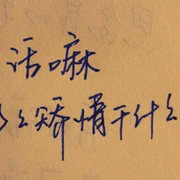 活嘛
么矫情干什么